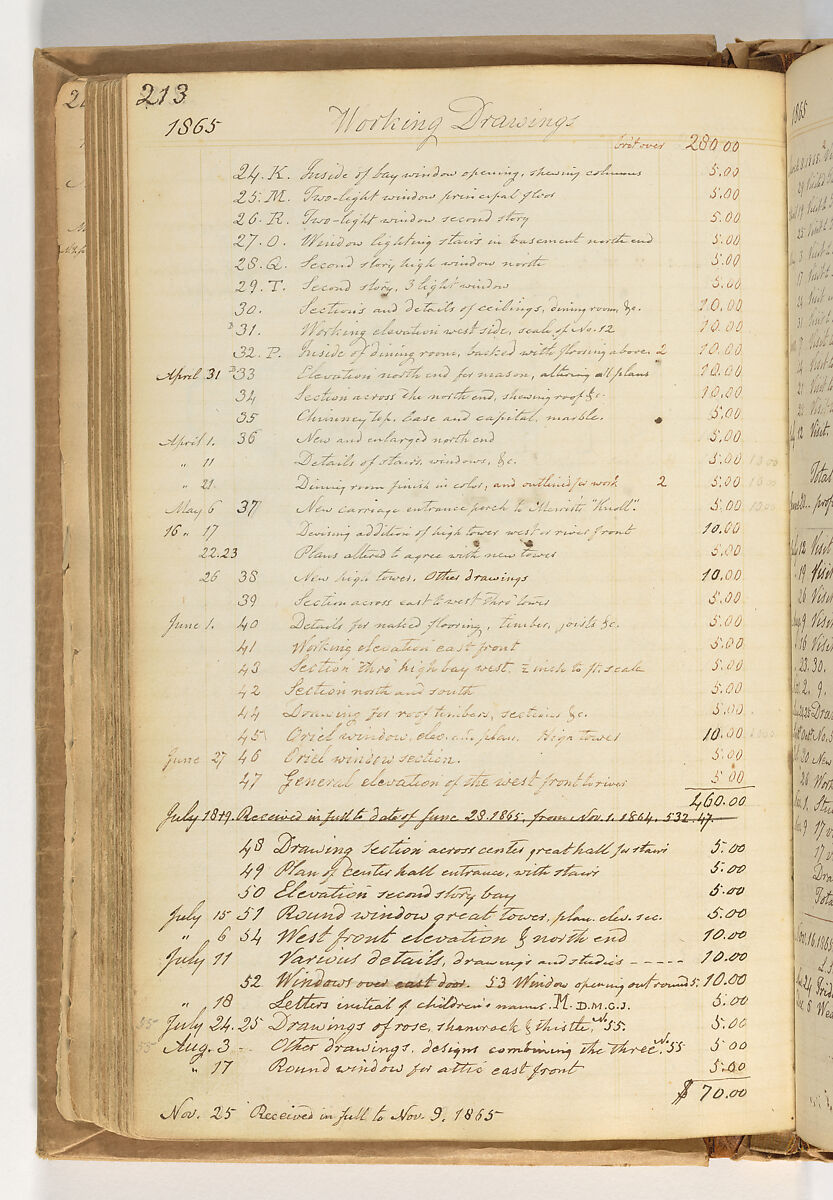 213
1865 Working Drawings
bro't over 280.00
24. K. Inside of bay window opening, shewing columns 5.00
25. M. Two-light window principal floor 5.00
26. R. Two-light window second story 5.00
27. O. Window lighting stairs in basement north end 5.00
28. Q. Second story high window north 5.00
29. T. Second story, 3 light window 5.00
30. Sections and details of ceilings, dining room, &c. 10.00
31. Working elevation west side, scale of No. 12 10.00
32. P. Inside of dining room, backed with flooring above. 2 10.00
April 31 33 Elevation north end for mason, altering all plans 10.00
34 Section across the north end, showing roof &c. 10.00
35 Chimney top, base and capital, marble. 5.00
April 1. 36 New and enlarged north end 5.00
" 11 Details of stairs, windows, &c. 5.00 10.00
" 21 Dining room finish in color, and outlined for work 2 5.00 10.00
May 6 37 New carriage entrance porch to Merritt's "Knoll". 5.00 10.00
16 " 17 Devising addition of high tower west or river front 10.00
22.23 Plans altered to agree with new tower 5.00
26 38 New high tower. Other drawings 10.00
39 Section across east to west thro' tower 5.00
June 1. 40 Details for naked flooring, timber, joists &c. 5.00
41 Working elevation east front 5.00
43 Section thro' high bay west. ½ inch to ft. scale 5.00
42 Section north and south 5.00
44 Drawing for roof timbers, sections &c. 5.00
45 Oriel window, elev. and plan. High tower 10.00
June 27 46 Oriel window section. 5.00
47 General elevation of the west front to river 5.00
460.00
July 18+9. Received in full to date of June 28. 1865, from Nov. 1. 1864. 532.47
48 Drawing section across center great hall for stairs 5.00
49 Plan of center hall entrance, with stairs 5.00
50 Elevation second story bay 5.00
July 15 51 Round window great tower, plan. elev. sec. 5.00
" 6 54 West front elevation & north end 10.00
July 11 Various details, drawings and studies - - - - - 10.00
52 Windows over east door. 53 Window opening out round 5. 10.00
" 18 Letters initial of children's names. M. D. M. G. J. 5.00
July 24. 25 Drawings of rose, shamrock & thistle. No 55. 5.00
Aug. 3 - Other drawings, designs combining the three. No 55 5.00
" 17 Round window for attic east front 5.00
$ 70.00
Nov. 25 Received in full to Nov. 9. 1865
1865
Total